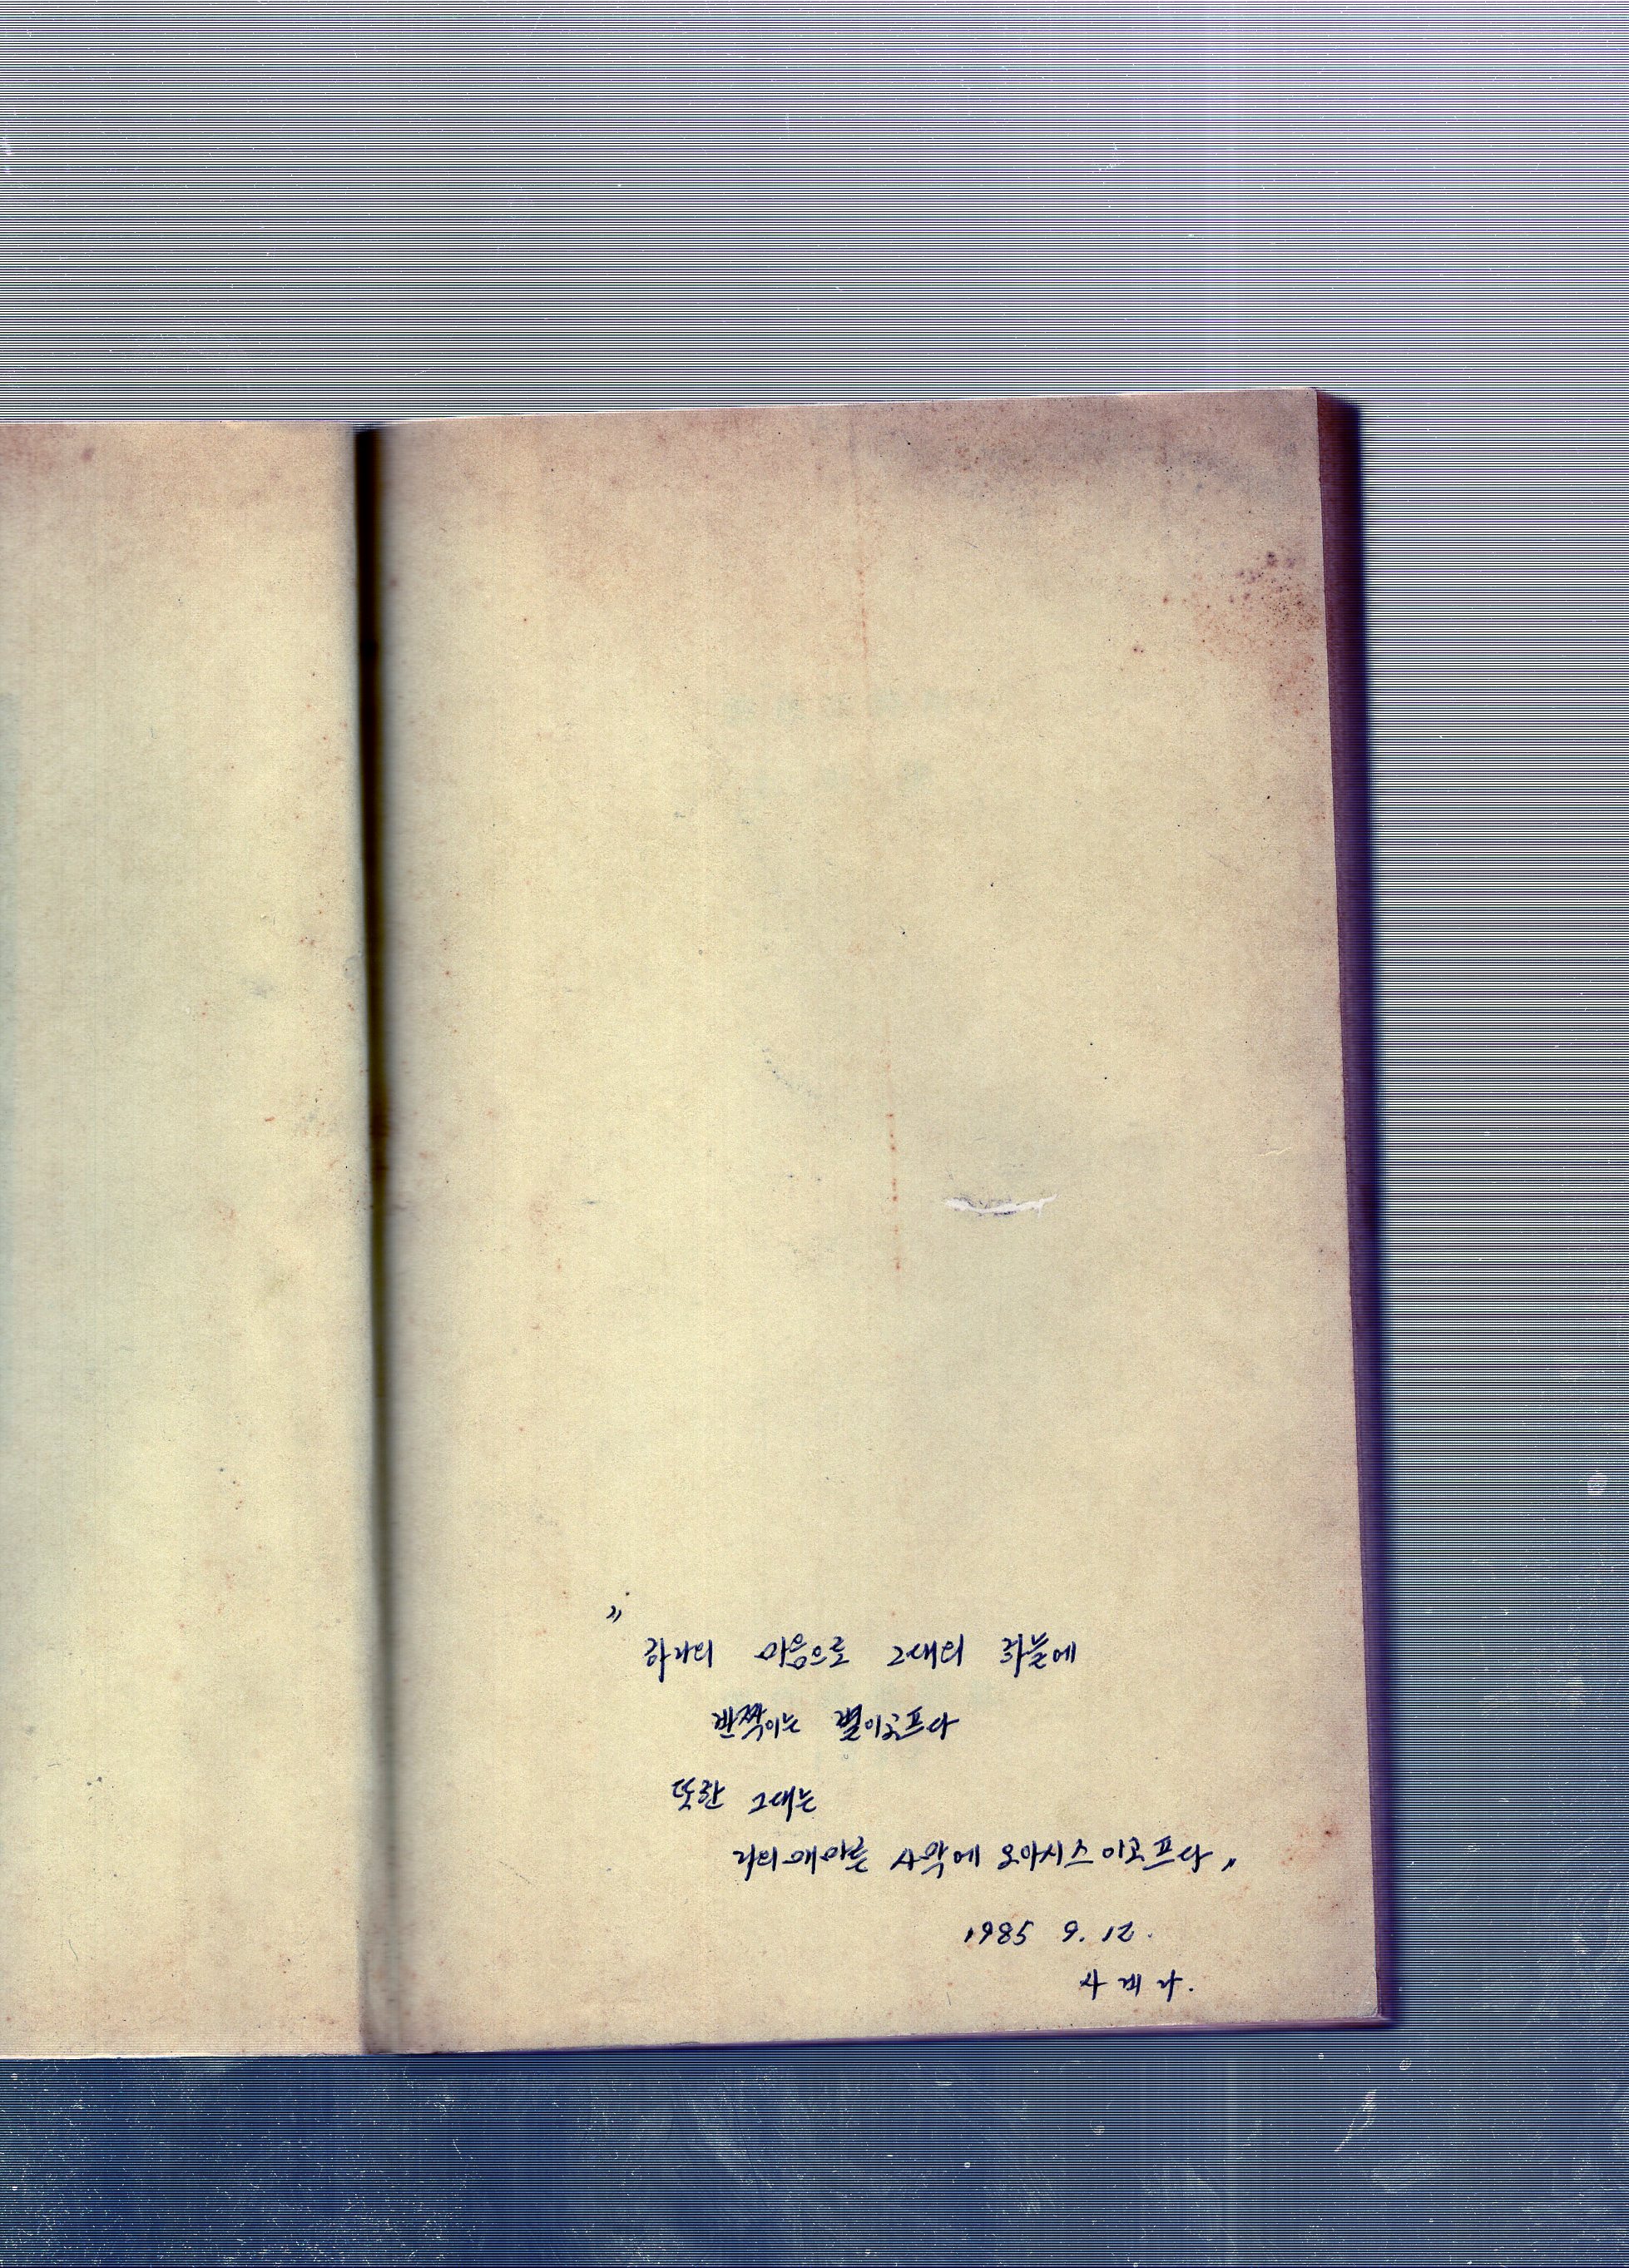 "하나의 마음으로 그대의 하늘에
반짝이는 별이고프다
또한 그대는
나의 메마른 사막에 오아시스이고프다"
1985 9. 12.